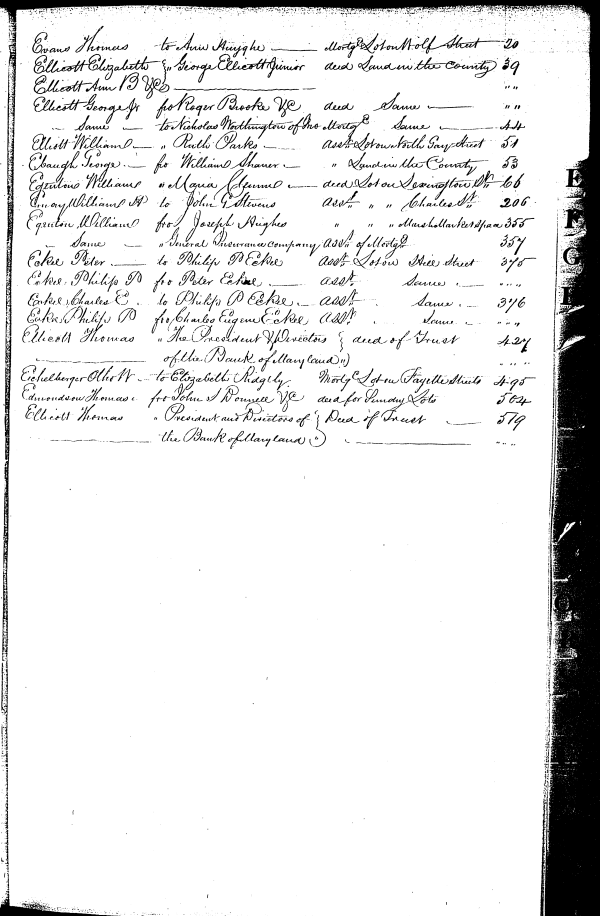 Evans Thomas to Ann Huyghe Mortge Lot on Wolf Street 20
Ellicott Elizabeth { " George Ellicott Junior deed Land in the County 39
Ellicott Ann B &c } " "
Ellicott George Jr fro Roger Brooke &c deed Same " "
Same to Nicholas Worthington of Jno Mortge Same 44
Elliott William " Ruth Parks asst Lot on North Gay Street 51
Ebaugh George fro William Shaner " Land in the County 53
Egerton William " Maria Clemm deed Lot on Lexington St 66
Emory William H to John G Stevens asst " " Charles St 206
Egerton William fro Joseph Hughes " " " Marsh Market Space 355
Same " General Insurance Company asst of Mortge 357
Eckel Peter to Philip P Eckel asst Lot on Hill Street 375
Eckel Philip P fro Peter Eckel asst Same " "
Eckel Charles E to Philip P Eckel asst Same 376
Eckel Philip P fro Charles Eugene Eckel asst Same " "
Ellicott Thomas " The President & Directors } deed of Trust 427
of the Bank of Maryland " ) " "
Eichelberger Otho W to Elizabeth Ridgely Mortge Lot on Fayette Streets 495
Edmondson Thomas fro John S Donnell &c deed for Sundry Lots 504
Ellicott Thomas " President and Directors of { Deed of Trust 519
the Bank of Maryland " ) " "
E
F
G